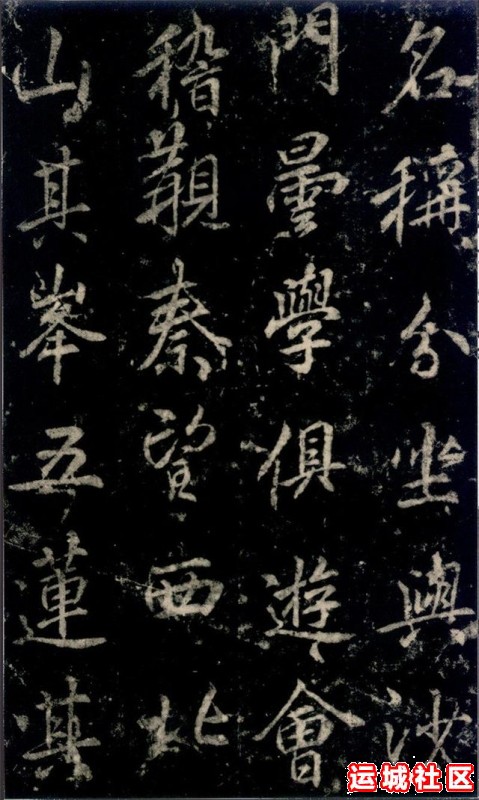 名稱分坐與沙
門曇學俱遊會
稽覲秦望西北
山其峯五蓮其
运城社区